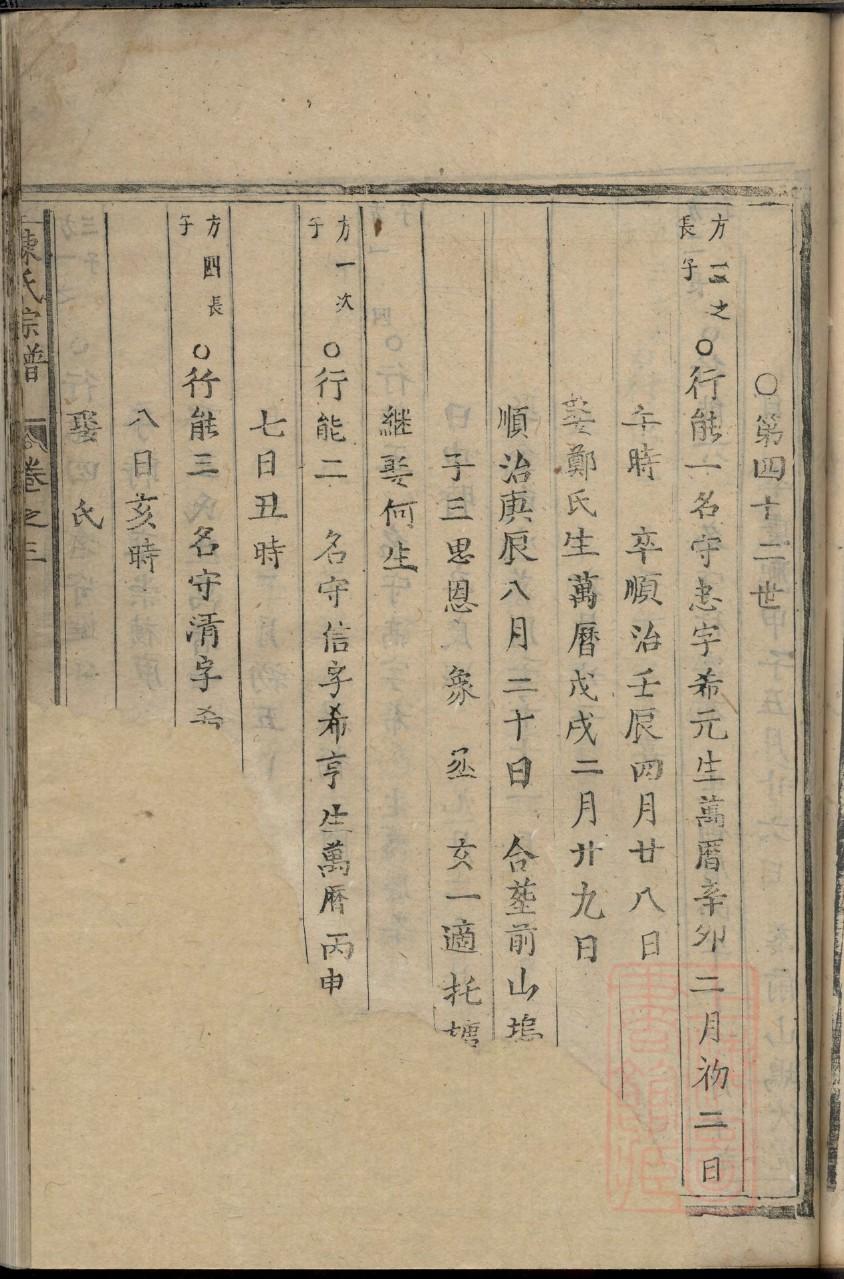 ○第四十二世
方一之
長子
○行能一名守忠字希元生萬曆辛卯二月初二日
午時 卒順治壬辰四月廿八日
娶鄭氏生萬曆戊戌二月廿九日
順治庚辰八月二十日 合塟前山塢
子三思恩 象 丞 女一適托塘
継娶何生
方一次
子
○行能二 名守信字希亨生萬曆丙申
七日丑時
方四長
子
○行能三 名守清字希
八日亥時
娶 氏
陳氏宗譜 卷之三